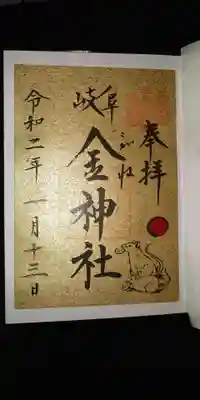 奉拝
岐阜
金神社
こがね
令和二年一月十三日